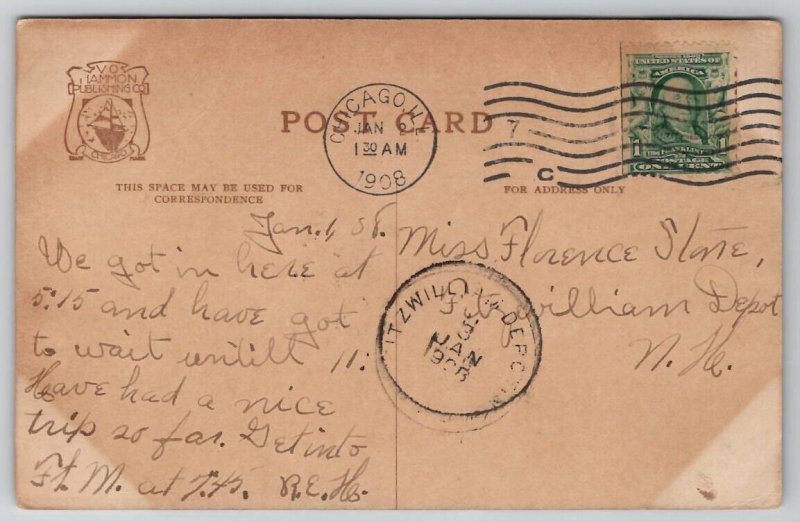 V. O.
HAMMON
PUBLISHING CO
CHICAGO
TRADE MARK
POST CARD
CHICAGO, ILL.
JAN 2
1 30 AM
1908
7
C
UNITED STATES OF
AMERICA
1 FRANKLIN 1
POSTAGE
ONE CENT
THIS SPACE MAY BE USED FOR
CORRESPONDENCE
FOR ADDRESS ONLY
Jan. 1, 08.
We got in here at
5:15 and have got
to wait untill 11:
Have had a nice
trip so far. Get into
Ft. M. at 7:45. R.E.H.
Miss Florence Stone,
Fitzwilliam Depot
N. H.
FITZWILLIAM DEPOT
3
JAN
1908